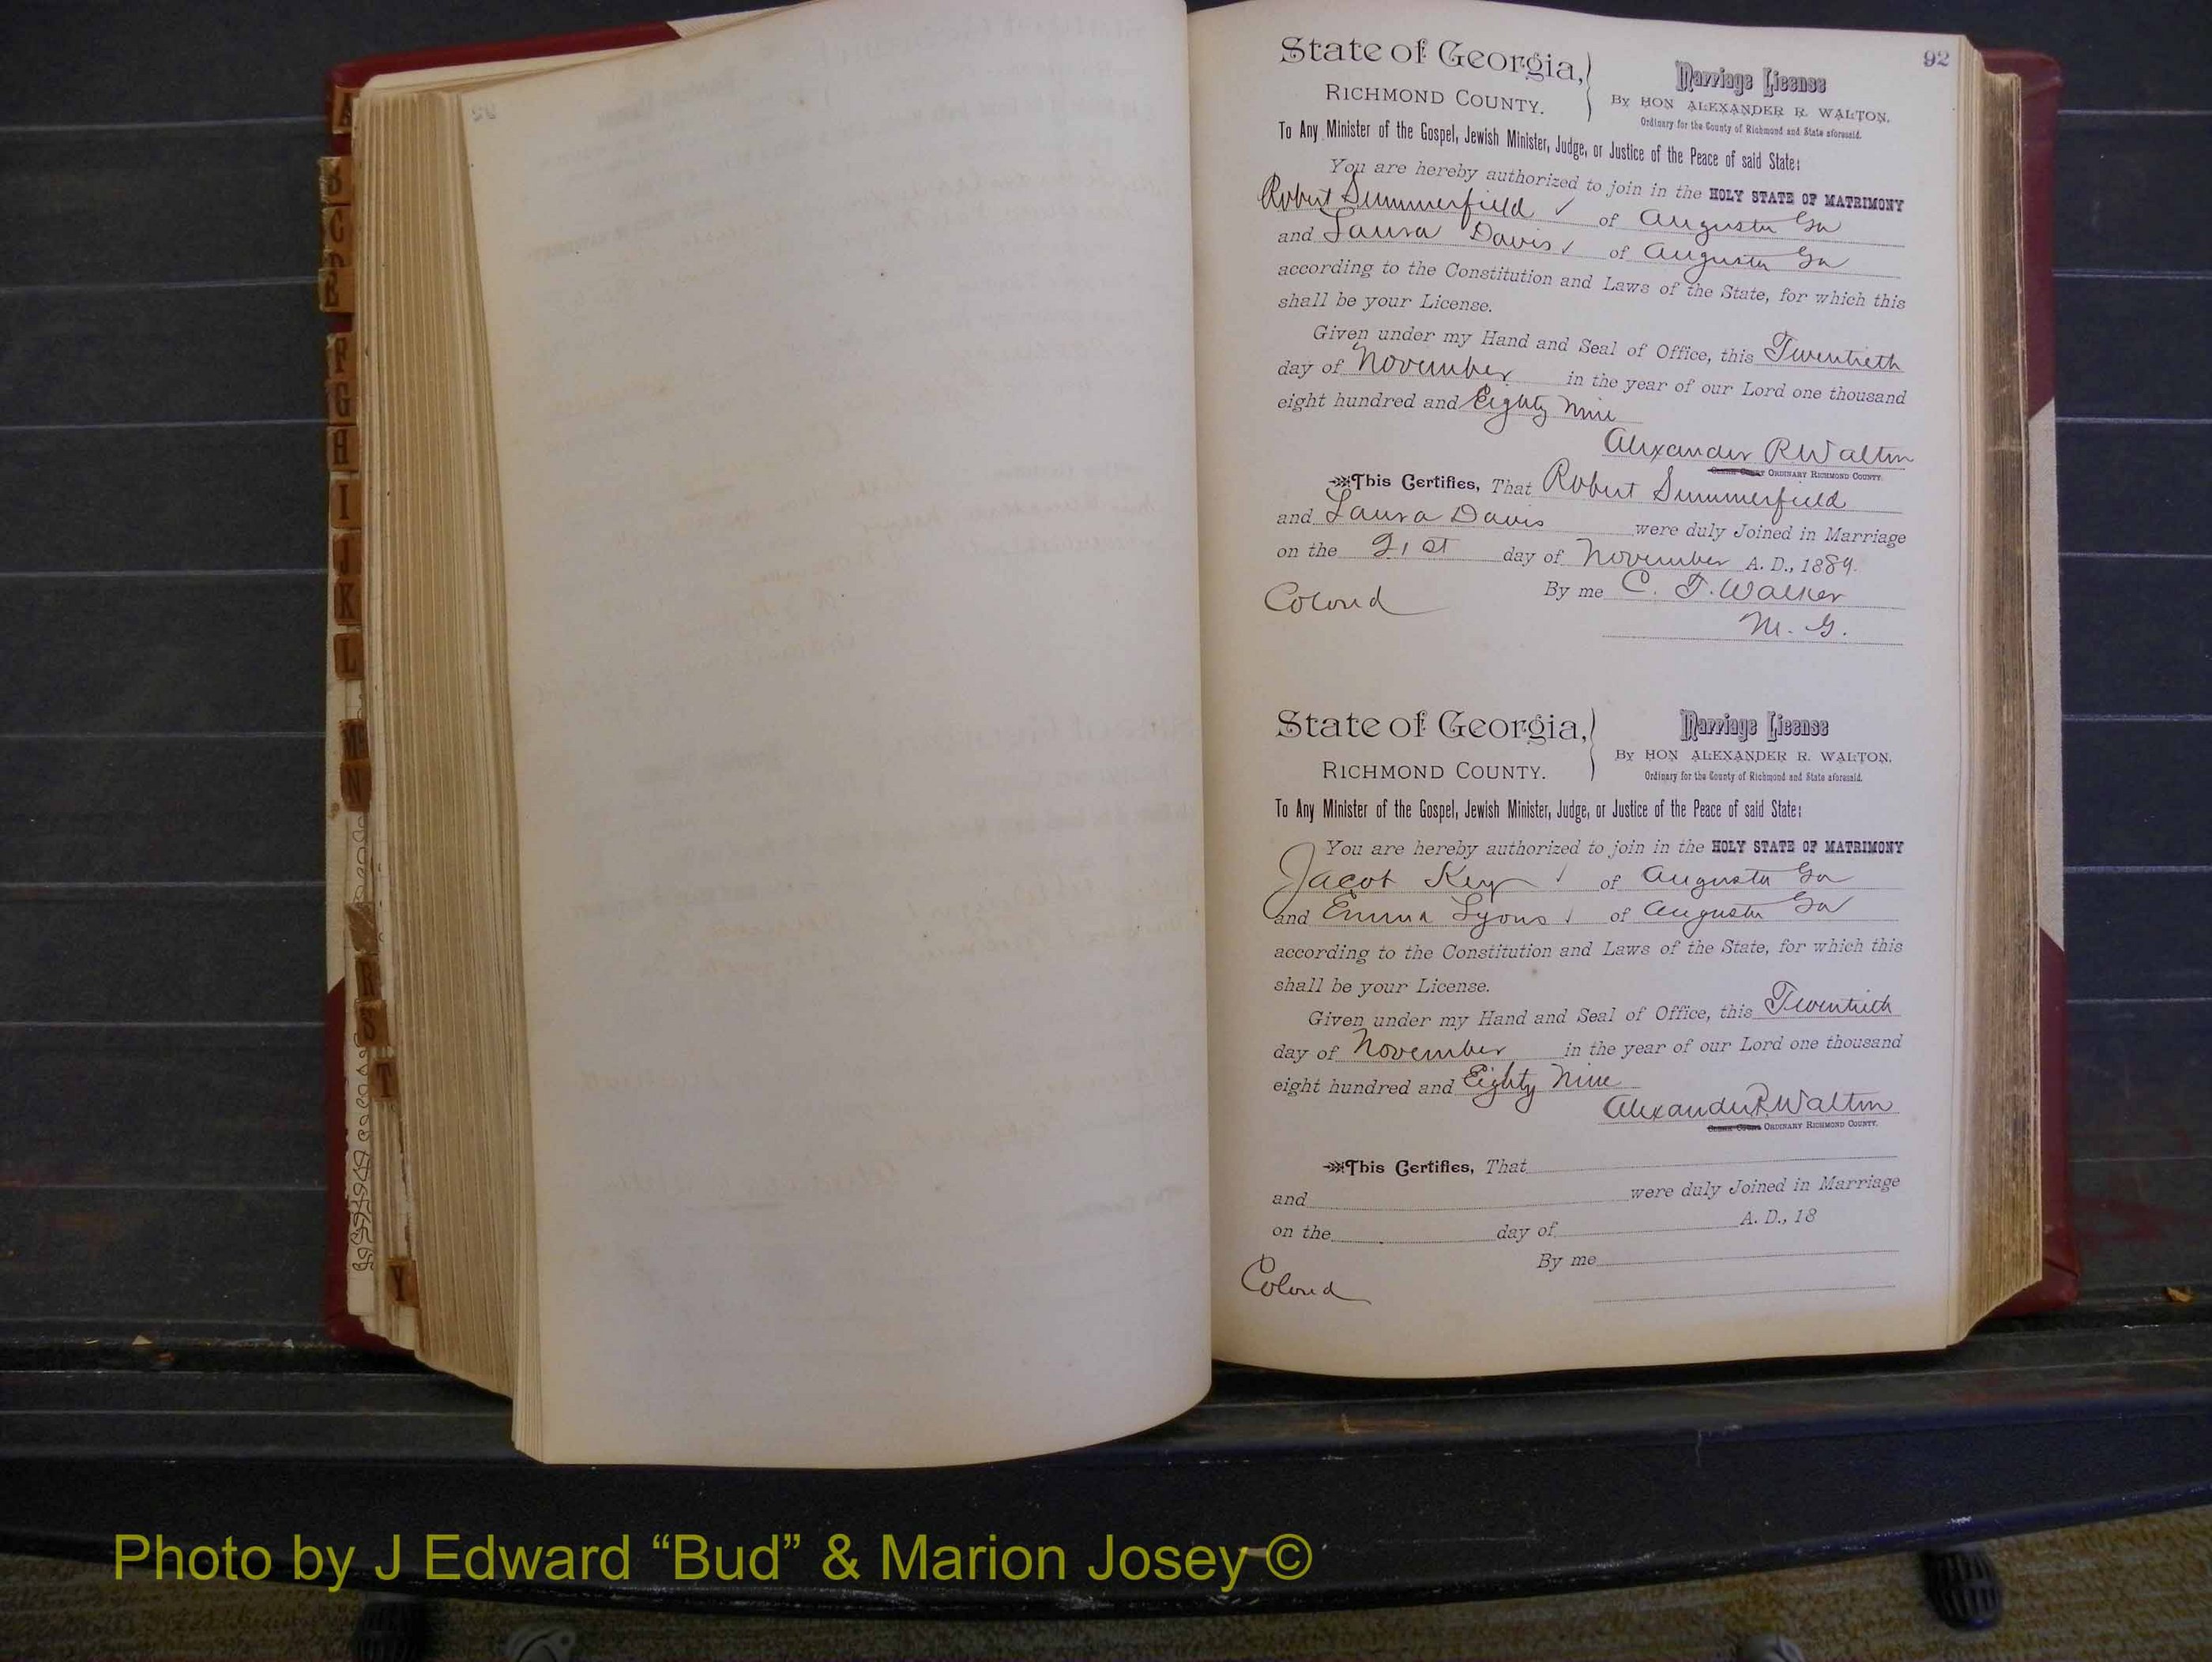 92
State of Georgia,
RICHMOND COUNTY.
Marriage License
By HON ALEXANDER R. WALTON,
Ordinary for the County of Richmond and State aforesaid.
To Any Minister of the Gospel, Jewish Minister, Judge, or Justice of the Peace of said State:
You are hereby authorized to join in the HOLY STATE OF MATRIMONY
Robert Summerfield ✓ of Augusta Ga
and Laura Davis ✓ of Augusta Ga
according to the Constitution and Laws of the State, for which this
shall be your License.
Given under my Hand and Seal of Office, this Twentieth
day of November in the year of our Lord one thousand
eight hundred and Eighty Nine
Alexander R Walton
ORDINARY RICHMOND COUNTY.
This Certifies, That Robert Summerfield
and Laura Davis were duly Joined in Marriage
on the 21st day of November A. D., 1889.
By me C. T. Walker
Colord
M. G.
State of Georgia,
RICHMOND COUNTY.
Marriage License
By HON ALEXANDER R. WALTON,
Ordinary for the County of Richmond and State aforesaid.
To Any Minister of the Gospel, Jewish Minister, Judge, or Justice of the Peace of said State:
You are hereby authorized to join in the HOLY STATE OF MATRIMONY
Jacob Key ✓ of Augusta Ga
and Emma Lyons ✓ of Augusta Ga
according to the Constitution and Laws of the State, for which this
shall be your License.
Given under my Hand and Seal of Office, this Twentieth
day of November in the year of our Lord one thousand
eight hundred and Eighty Nine
Alexander R. Walton
ORDINARY RICHMOND COUNTY.
This Certifies, That
and were duly Joined in Marriage
on the day of A. D., 18
By me
Colord
A
B
C
F
G
H
I
J
K
L
N
R
S
T
Y
Photo by J Edward “Bud” & Marion Josey ©